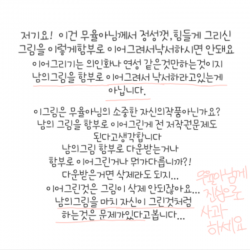 저기요! 이건 무율아님께서 정성껏, 힘들게 그리신
그림을 이렇게함부로 이어그려서낙서하시면 안돼요
이어그리기는 의인화나 연성 같은것만하는것이지
남의그림을 함부로 이어그려서 낙서하라고있는게
아닙니다.
이그림은 무율아님의 소중한 자신의작품아닌가요?
남의 그림을 함부로 이어그린게 전 저작권문제도
된다고생각합니다
남의그림 함부로 다운받는거나
함부로 이어그린거나 뭐가다릅니까?!
다운받은거면 삭제라도 되지...
이어그린것은 그림이 삭제 안되잖아요...
남의그림을 마치 자신이 그린것처럼
하는것은 문제가있다고봅니다...
무율아님께
사과
하세요